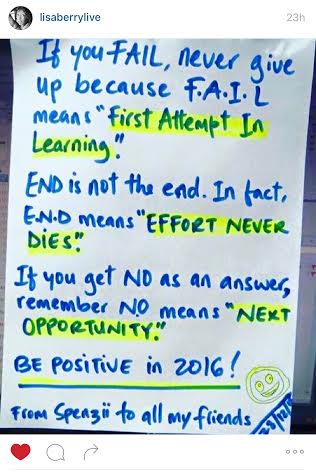 lisaberrylive 23h
If you FAIL, never give
up because F.A.I.L
means "First Attempt In
Learning."
END is not the end. In fact,
E.N.D means "EFFORT NEVER
DIES."
If you get NO as an answer,
remember N.O means "NEXT
OPPORTUNITY."
BE POSITIVE in 2016!
From Spenzii to all my friends